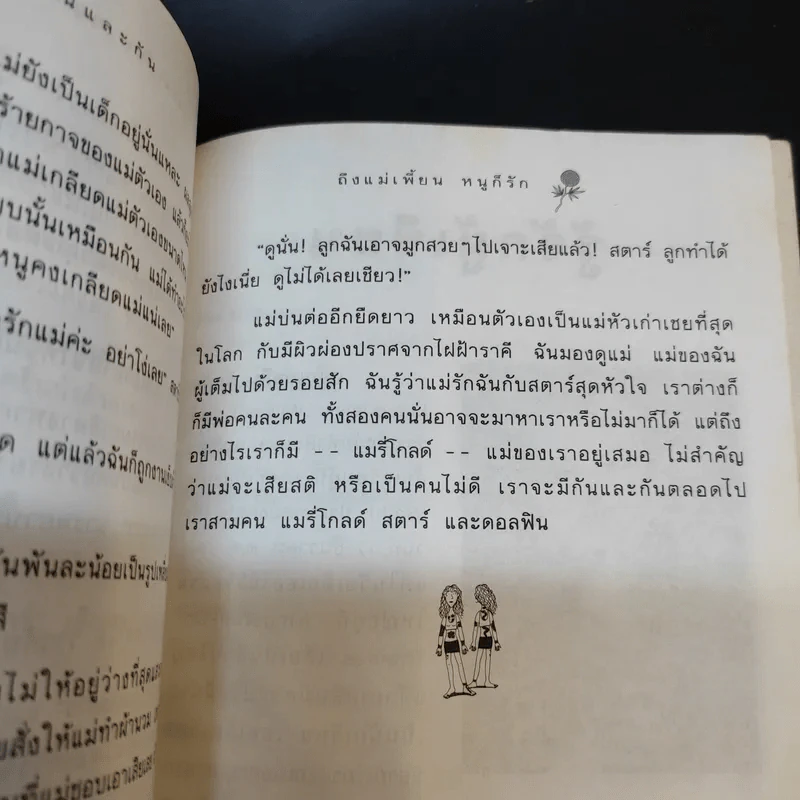 นและกัน
ม่ยังเป็นเด็กอยู่นั่นแหละ
ร้ายกาจของแม่ตัวเอง แล้ว
แม่เกลียดแม่ตัวเองขนาดไหน
บบนั้นเหมือนกัน แม่ได้ทำ
หนูคงเกลียดแม่แน่เลย"
รักแม่ค่ะ อย่าโง่เลย"
ด แต่แล้วฉันก็ถูกงาน
ันพันละน้อยเป็นรูป
ไม่ให้อยู่ว่างที่สุด
ยสั่งให้แม่ทำผ้านวม
แม่ชอบเอาเสีย
ถึงแม่เพี้ยน หนูก็รัก
"ดูนั่น! ลูกฉันเอาจมูกสวยๆไปเจาะเสียแล้ว! สตาร์ ลูกทำได้
ยังไงเนี่ย ดูไม่ได้เลยเชียว!"
แม่บ่นต่ออีกยืดยาว เหมือนตัวเองเป็นแม่หัวเก่าเชยที่สุด
ในโลก กับมีผิวผ่องปราศจากไฝฝ้าราคี ฉันมองดูแม่ แม่ของฉัน
ผู้เต็มไปด้วยรอยสัก ฉันรู้ว่าแม่รักฉันกับสตาร์สุดหัวใจ เราต่างก็
ก็มีพ่อคนละคน ทั้งสองคนนั่นอาจจะมาหาเราหรือไม่มาก็ได้ แต่ถึง
อย่างไรเราก็มี -- แมรี่โกลด์ -- แม่ของเราอยู่เสมอ ไม่สำคัญ
ว่าแม่จะเสียสติ หรือเป็นคนไม่ดี เราจะมีกันและกันตลอดไป
เราสามคน แมรี่โกลด์ สตาร์ และดอลฟิน